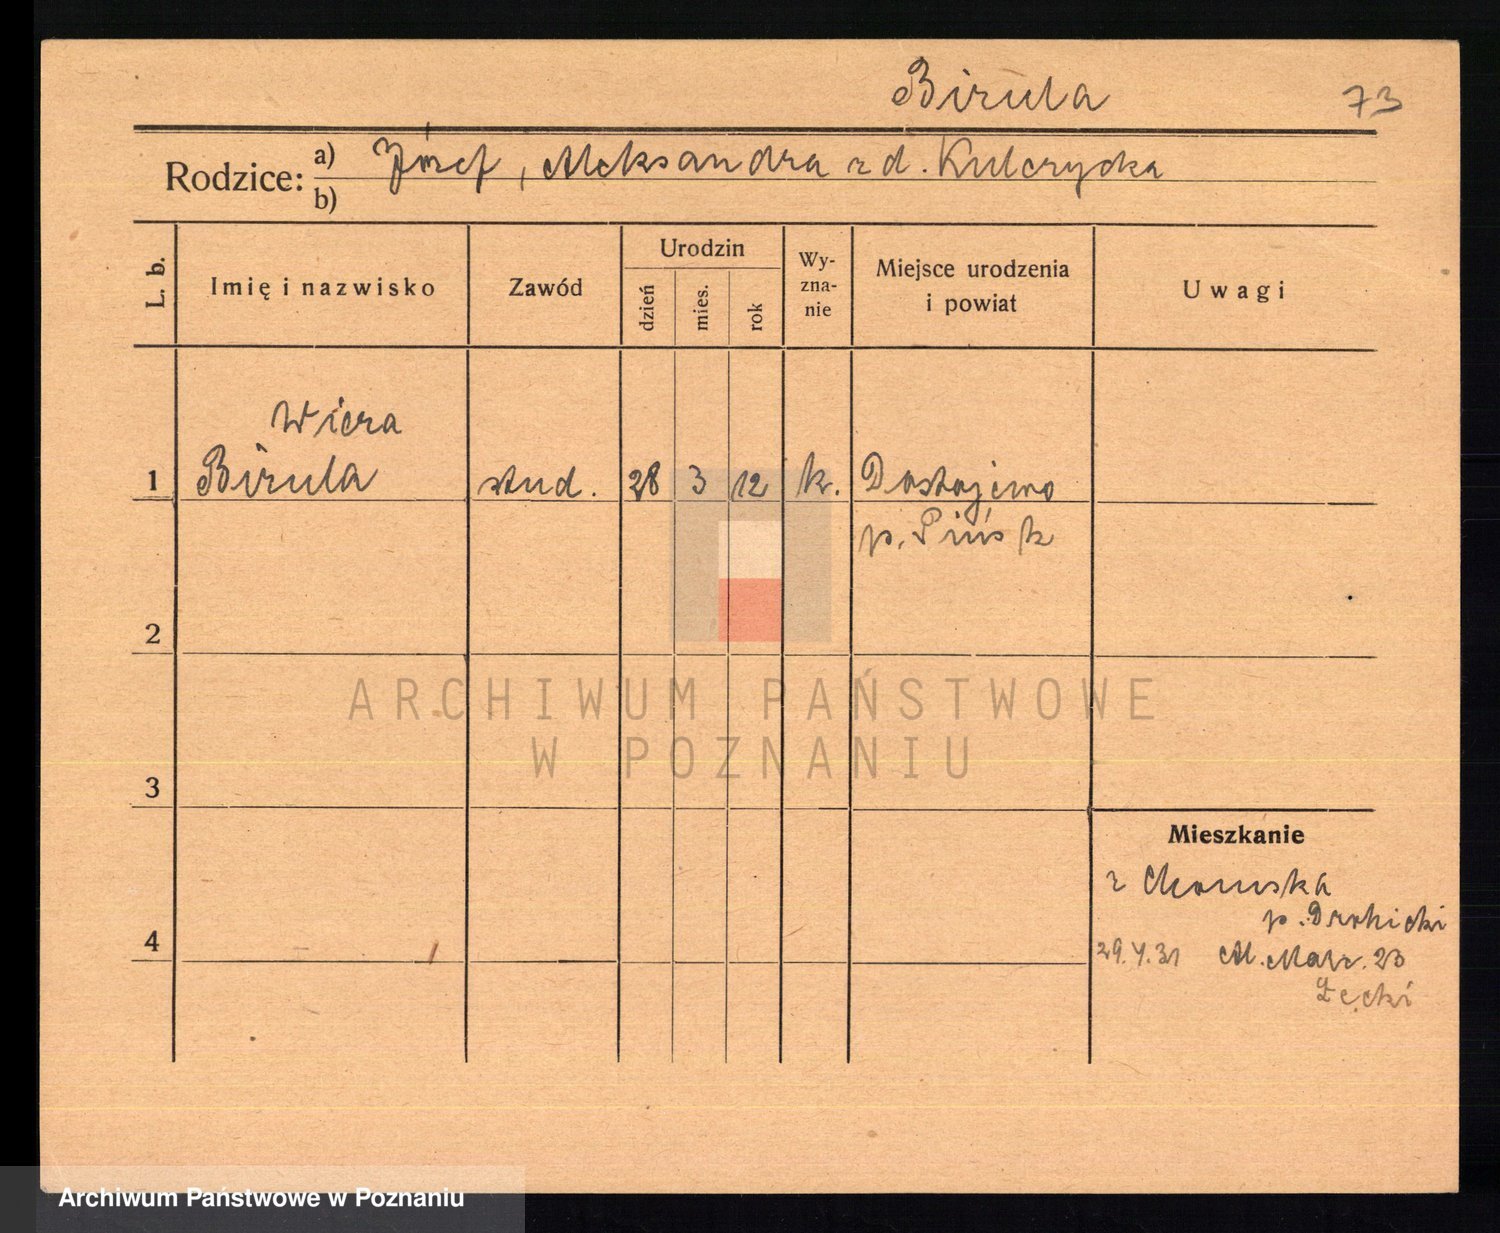 Birula 73
Rodzice: a) Józef, Aleksandra z d. Kulczycka
b)
L. b. Imię i nazwisko Zawód Urodzin dzień mies. rok Wy-zna-nie Miejsce urodzenia i powiat Uwagi
Wiera
1 Birula stud. 28 3 12 k. Dostojewo
p. Pińsk
2
ARCHIWUM PAŃSTWOWE
W POZNANIU
3
Mieszkanie
z Chomska
p. Drohicki
4 29.4.31 Al. Mar. 23
Łęcki
Archiwum Państwowe w Poznaniu